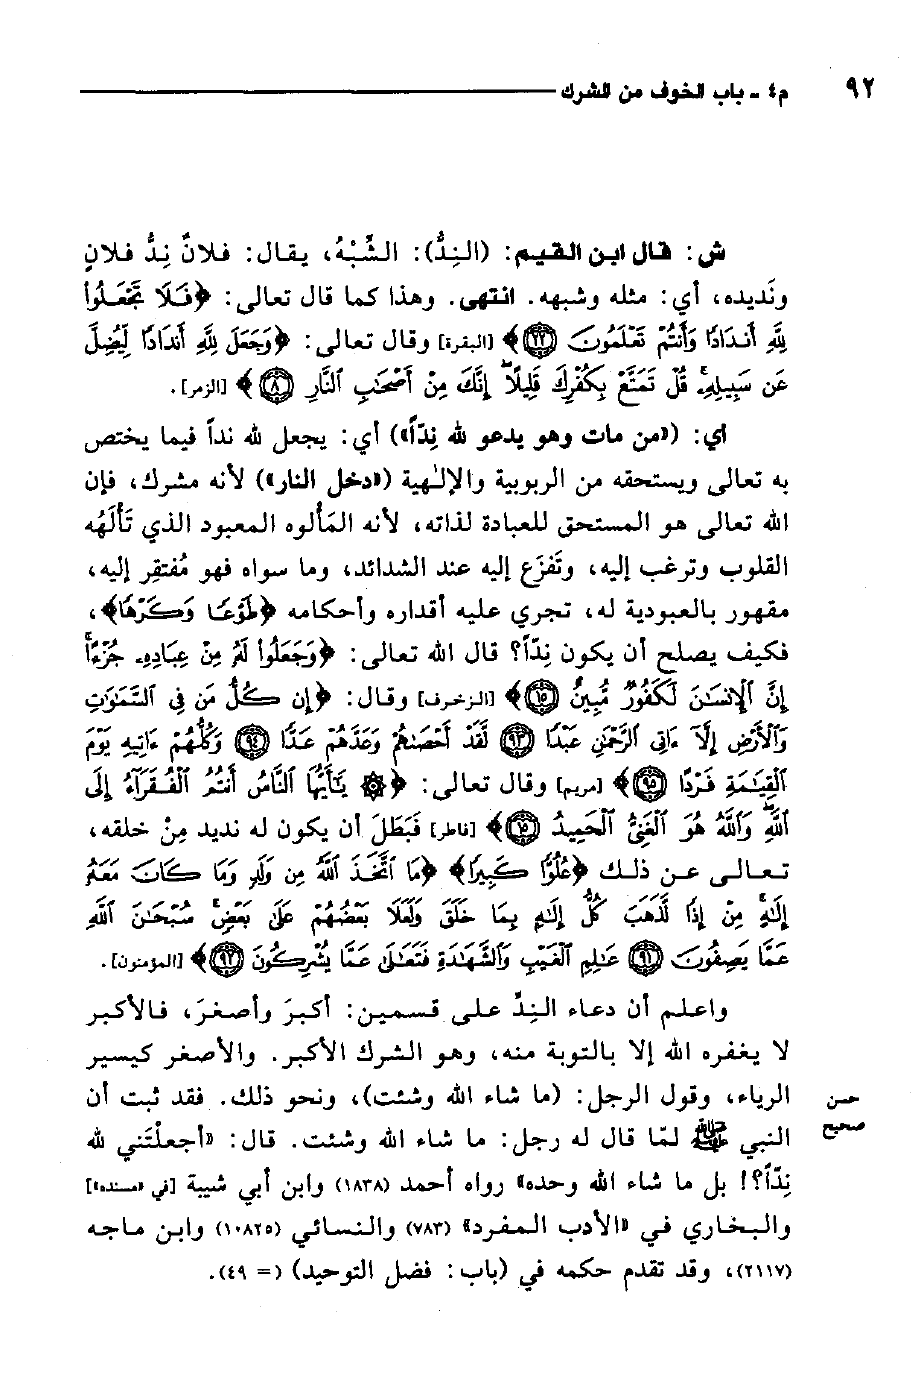 ٩٢ م٤ - باب الخوف من الشرك
ش: قال ابن القيم: (النِدُّ): الشَّبْهُ، يقال: فلانٌ نِدُّ فلانٍ
ونَديده، أي: مثله وشبهه. انتهى. وهذا كما قال تعالى: ﴿فَلَا تَجْعَلُوا۟
لِلَّهِ أَندَادًا وَأَنتُمْ تَعْلَمُونَ ٢٢﴾ [البقرة] وقال تعالى: ﴿وَجَعَلَ لِلَّهِ أَندَادًا لِّيُضِلَّ
عَن سَبِيلِهِۦ ۚ قُلْ تَمَتَّعْ بِكُفْرِكَ قَلِيلًا ۖ إِنَّكَ مِنْ أَصْحَٰبِ ٱلنَّارِ ٨﴾ [الزمر].
أي: («من مات وهو يدعو لله نِدّاً») أي: يجعل لله نداً فيما يختص
به تعالى ويستحقه من الربوبية والإلٰهية («دخل النار») لأنه مشرك، فإن
الله تعالى هو المستحق للعبادة لذاته، لأنه المَألوه المعبود الذي تَألَهُه
القلوب وترغب إليه، وتَفزَع إليه عند الشدائد، وما سواه فهو مُفتقر إليه،
مقهور بالعبودية له، تجري عليه أقداره وأحكامه ﴿طَوْعًا وَكَرْهًا﴾،
فكيف يصلح أن يكون نِدّاً؟ قال الله تعالى: ﴿وَجَعَلُوا۟ لَهُۥ مِنْ عِبَادِهِۦ جُزْءًا ۚ
إِنَّ ٱلْإِنسَٰنَ لَكَفُورٌ مُّبِينٌ ١٥﴾ [الزخرف] وقال: ﴿إِن كُلُّ مَن فِى ٱلسَّمَٰوَٰتِ
وَٱلْأَرْضِ إِلَّآ ءَاتِى ٱلرَّحْمَٰنِ عَبْدًا ٩٣ لَّقَدْ أَحْصَىٰهُمْ وَعَدَّهُمْ عَدًّا ٩٤ وَكُلُّهُمْ ءَاتِيهِ يَوْمَ
ٱلْقِيَٰمَةِ فَرْدًا ٩٥﴾ [مريم] وقال تعالى: ﴿۞ يَٰٓأَيُّهَا ٱلنَّاسُ أَنتُمُ ٱلْفُقَرَآءُ إِلَى
ٱللَّهِ ۖ وَٱللَّهُ هُوَ ٱلْغَنِىُّ ٱلْحَمِيدُ ١٥﴾ [فاطر] فَبَطَلَ أن يكون له نديد مِنْ خلقه،
تعالى عن ذلك ﴿عُلُوًّا كَبِيرًا﴾ ﴿مَا ٱتَّخَذَ ٱللَّهُ مِن وَلَدٍ وَمَا كَانَ مَعَهُۥ
مِنْ إِلَٰهٍ ۚ إِذًا لَّذَهَبَ كُلُّ إِلَٰهٍۭ بِمَا خَلَقَ وَلَعَلَا بَعْضُهُمْ عَلَىٰ بَعْضٍ ۚ سُبْحَٰنَ ٱللَّهِ
عَمَّا يَصِفُونَ ٩١ عَٰلِمِ ٱلْغَيْبِ وَٱلشَّهَٰدَةِ فَتَعَٰلَىٰ عَمَّا يُشْرِكُونَ ٩٢﴾ [المؤمنون].
واعلم أن دعاء النِدِّ على قسمين: أكبرَ وأصغرَ، فالأكبر
لا يغفره الله إلا بالتوبة منه، وهو الشرك الأكبر. والأصغر كيسير
الرياء، وقول الرجل: (ما شاء الله وشئت)، ونحو ذلك. فقد ثبت أن
حسن
النبي ﷺ لمّا قال له رجل: ما شاء الله وشئت. قال: «أجعلْتَني لله
صحيح
نِدّاً؟! بل ما شاء الله وحده» رواه أحمد (١٨٣٨) وابن أبي شيبة [في «مسنده»]
والبخاري في «الأدب المفرد» (٧٨٣) والنسائي (١٠٨٢٥) وابن ماجه
(٢١١٧)، وقد تقدم حكمه في (باب: فضل التوحيد) (= ٤٩).